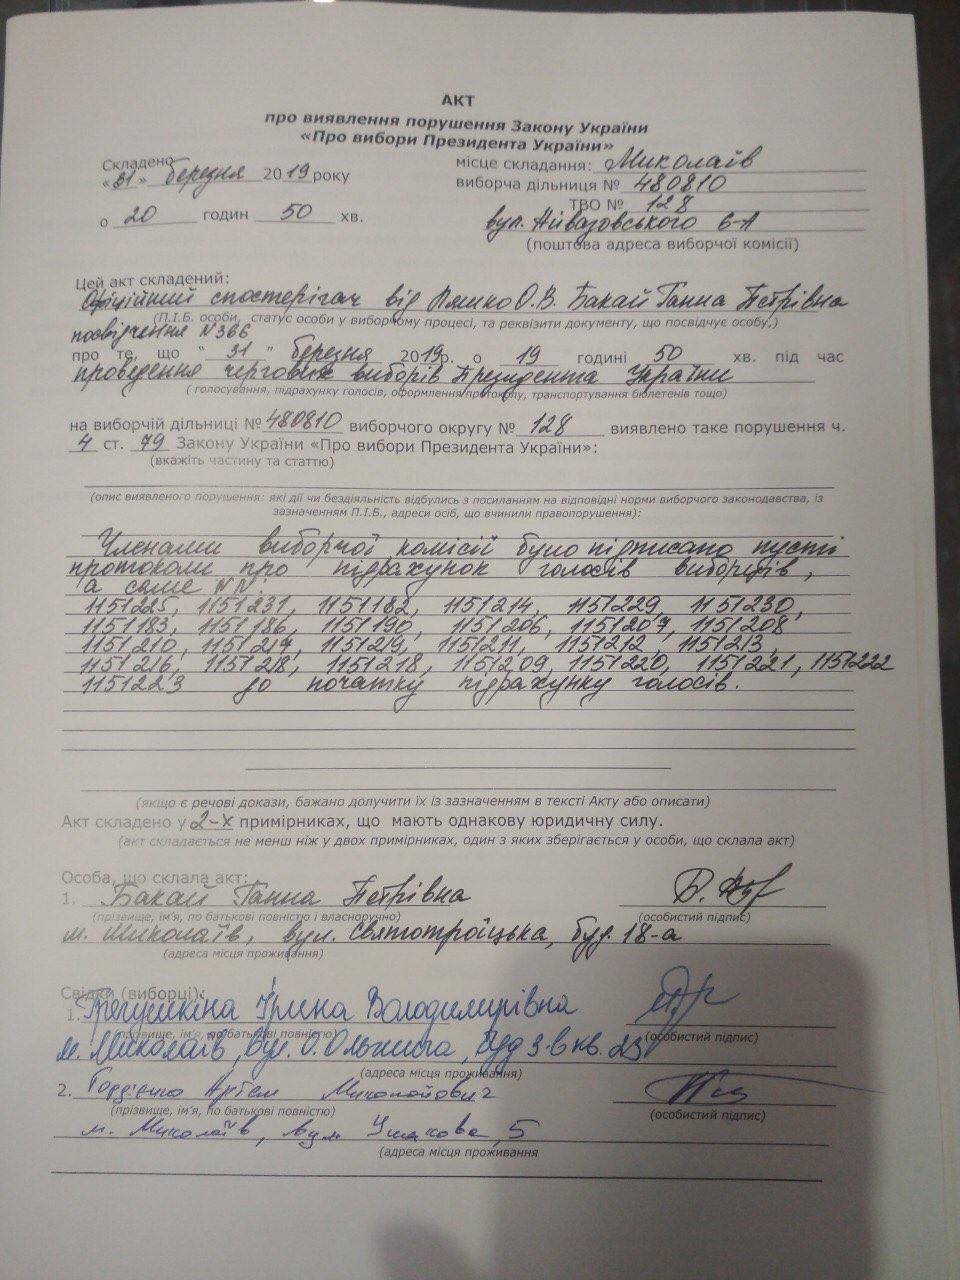 АКТ
про виявлення порушення Закону України
«Про вибори Президента України»
Складено
«31» березня 2019 року
о 20 годин 50 хв.
місце складання: Миколаїв
виборча дільниця № 480810
ТВО № 128
вул. Айвазовського 6-А
(поштова адреса виборчої комісії)
Цей акт складений:
Офіційний спостерігач від Ляшко О.В. Бакай Ганна Петрівна
(П.І.Б. особи, статус особи у виборчому процесі, та реквізити документу, що посвідчує особу,)
посвідчення N366
про те, що "31" березня 2019р. о 19 годині 50 хв. під час
проведення чергових виборів Президента України
( голосування, підрахунку голосів, оформлення протоколу, транспортування бюлетенів тощо)
на виборчій дільниці № 480810 виборчого округу № 128 виявлено таке порушення ч.
4 ст. 79 Закону України «Про вибори Президента України»:
(вкажіть частину та статтю)
(опис виявленого порушення: які дії чи бездіяльність відбулись з посиланням на відповідні норми виборчого законодавства, із
зазначенням П.І.Б., адреси осіб, що вчинили правопорушення):
Членами виборчої комісії було підписано пусті
протоколи про підрахунок голосів виборців,
а саме NN:
1151225, 1151231, 1151182, 1151214, 1151229, 1151230,
1151183, 1151186, 1151190, 1151206, 1151207, 1151208
1151210, 1151217, 1151219, 1151211, 1151212, 1151213,
1151216, 1151218, 1151218, 1151209, 1151220, 1151221, 1151222
1151223 до початку підрахунку голосів.
(якщо є речові докази, бажано долучити їх із зазначенням в тексті Акту або описати)
Акт складено у 2-х примірниках, що мають однакову юридичну силу.
(акт складається не менш ніж у двох примірниках, один з яких зберігається у особи, що склала акт)
Особа, що склала акт:
1. Бакай Ганна Петрівна
(прізвище, ім'я, по батькові повністю і власноручно) (особистий підпис)
м. Миколаїв, вул. Святотроїцька, буд. 18-а
(адреса місця проживання)
Свідки (виборці):
1. Ірина Володимирівна
(прізвище, ім'я, по батькові повністю) (особистий підпис)
м. Миколаїв, вул. О. Ольжича, буд 3-в кв. 23
(адреса місця проживання)
2. Гордієнко Артем Миколайович
(прізвище, ім'я, по батькові повністю) (особистий підпис)
м. Миколаїв, вул Ушакова, 5
(адреса місця проживання